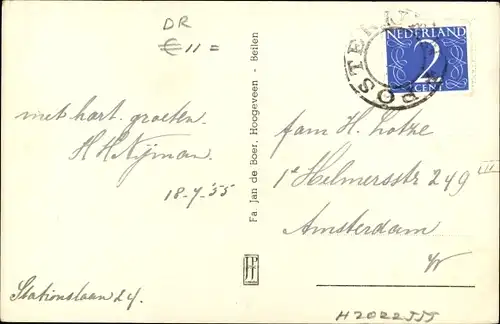 DR
€ 11 =
NEDERLAND
2
CENT
POS
met hart. groeten.
H H Nijman.
18-7-'55
Stationslaan 24.
Fa. Jan de Boer, Hoogeveen - Beilen
fam H.
1e Helmersstr 249 III
Amsterdam
W
H2022555